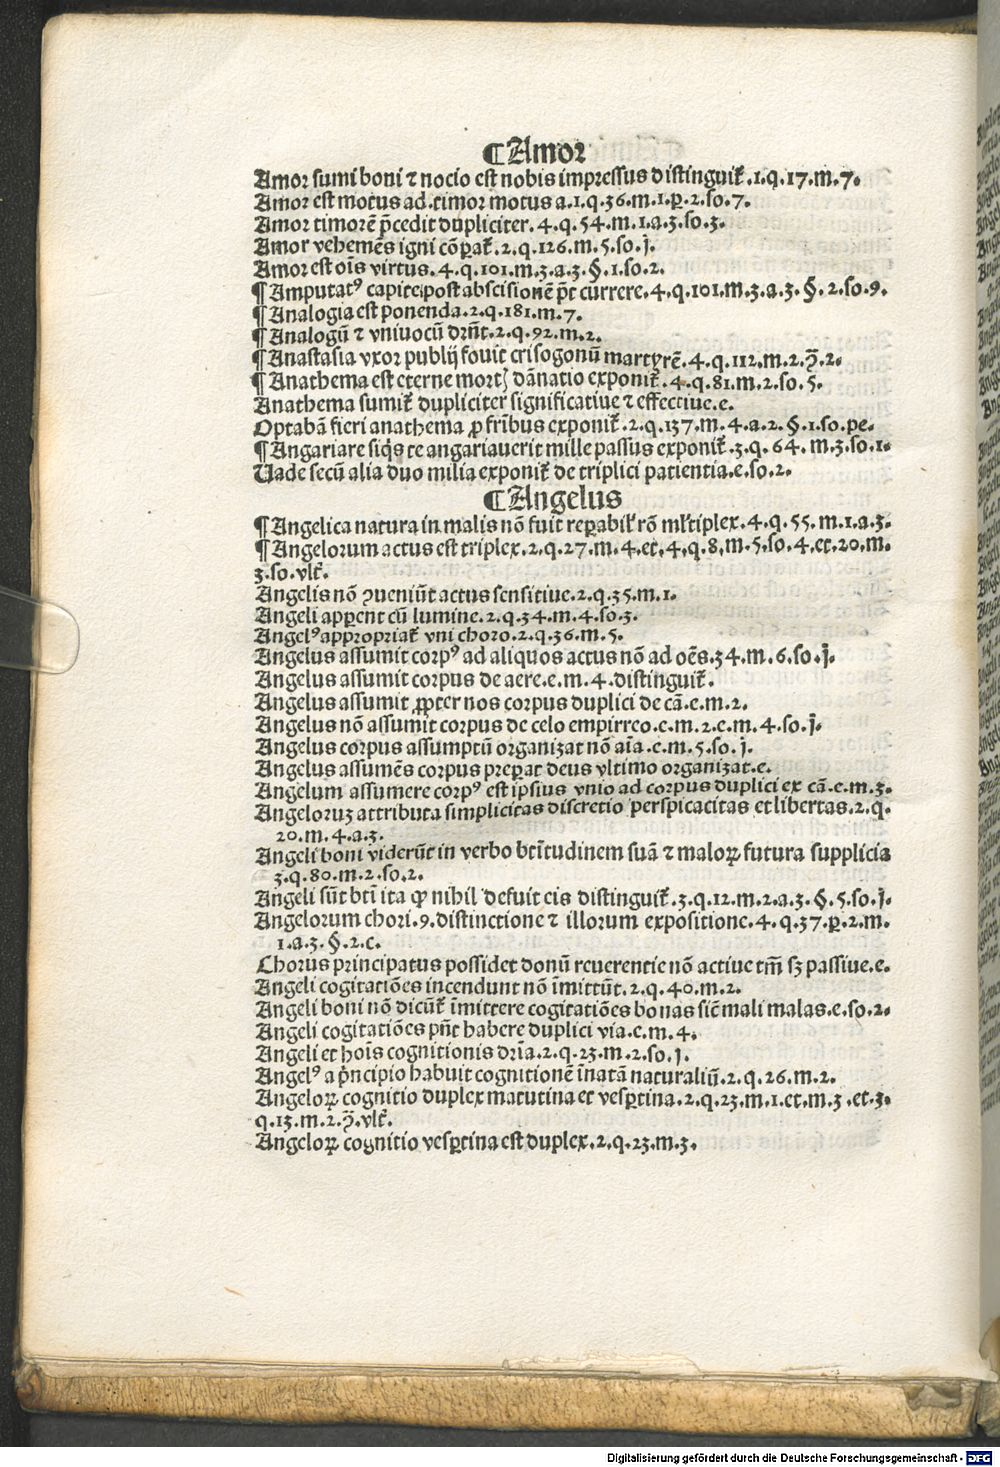 ¶Amor
Amor sumi boni ⁊ nocio est nobis impressus distinguit᷑.1.q.17.m.7.
Amor est motus ad.timor motus a.1.q.36.m.1.p̱.2.so.7.
Amor timorē p̄cedit dupliciter.4.q.54.m.1.a.3.so.3.
Amor vehemēs igni cōparat᷑.2.q.126.m.5.so.j.
Amor est oīs virtus.4.q.101.m.3.a.3.§.1.so.2.
¶Amputatꝰ capite post abscisionē p̄t currere.4.q.101.m.3.a.3.§.2.so.9.
¶Analogia est ponenda.2.q.181.m.7.
¶Analogū ⁊ vniuocū dr̄nt.2.q.92.m.2.
¶Anastasia vxor publij fouit crisogonū martyrē.4.q.112.m.2.ꝯ̄.2.
¶Anathema est eterne mortꝭ dānatio exponit᷑.4.q.81.m.2.so.5.
Anathema sumit᷑ dupliciter significatiue ⁊ effectiue.e.
Optabā fieri anathema ꝓ fr̄ibus exponit᷑.2.q.137.m.4.a.2.§.1.so.pe.
¶Angariare siq̇s te angariauerit mille passus exponit᷑.3.q.64.m.3.so.1.
Uade secū alia duo milia exponit᷑ de triplici patientia.e.so.2.
¶Angelus
¶Angelica natura in malis nō fuit reꝑabil᷑ rō ml̄tiplex.4.q.55.m.1.a.3.
¶Angelorum actus est triplex.2.q.27.m.4.et.4.q.8.m.5.so.4.et.20.m.
3.so.vlt᷑.
Angelis nō ꝯueniūt actus sensitiue.2.q.35.m.1.
Angeli apꝑent cū lumine.2.q.34.m.4.so.3.
Angelꝰ appropriat᷑ vni choro.2.q.36.m.5.
Angelus assumit corpꝰ ad aliquos actus nō ad oēs.34.m.6.so.j.
Angelus assumit corpus de aere.e.m.4.distinguit᷑.
Angelus assumit ꝓpter nos corpus duplici de cā.e.m.2.
Angelus nō assumit corpus de celo empirreo.e.m.2.e.m.4.so.j.
Angelus corpus assumptū organizat nō aīa.e.m.5.so.j.
Angelus assumēs corpus preparat deus vltimo organizat.e.
Angelum assumere corpꝰ est ipsius vnio ad corpus duplici ex cā.e.m.3.
Angeloruꝫ attributa simplicitas discretio perspicacitas et libertas.2.q.
20.m.4.a.3.
Angeli boni viderūt in verbo bt̄itudinem suā ⁊ maloꝝ futura supplicia
3.q.80.m.2.so.2.
Angeli sūt bt̄i ita ꝙ nihil defuit eis distinguit᷑.3.q.12.m.2.a.3.§.5.so.j.
Angelorum chori.9.distinctione ⁊ illorum expositione.4.q.37.p̱.2.m.
1.a.3.§.2.c.
Chorus principatus possidet donū reuerentie nō actiue tm̄ sꝫ passiue.e.
Angeli cogitatiōes incendunt nō īmittūt.2.q.40.m.2.
Angeli boni nō dicūt᷑ īmittere cogitatiōes bonas sic̄ mali malas.e.so.2.
Angeli cogitatiōes p̄nt habere duplici via.e.m.4.
Angeli et hoīs cognitionis dr̄ia.2.q.23.m.2.so.j.
Angelꝰ a pͥncipio habuit cognitionē īnatā naturaliū.2.q.26.m.2.
Angeloꝝ cognitio duplex matutina et vesꝑtina.2.q.23.m.1.et.m.3.et.3.
q.13.m.2.ꝯ̄.vlt᷑.
Angeloꝝ cognitio vesꝑtina est duplex.2.q.23.m.3.
Digitalisierung gefördert durch die Deutsche Forschungsgemeinschaft - DFG